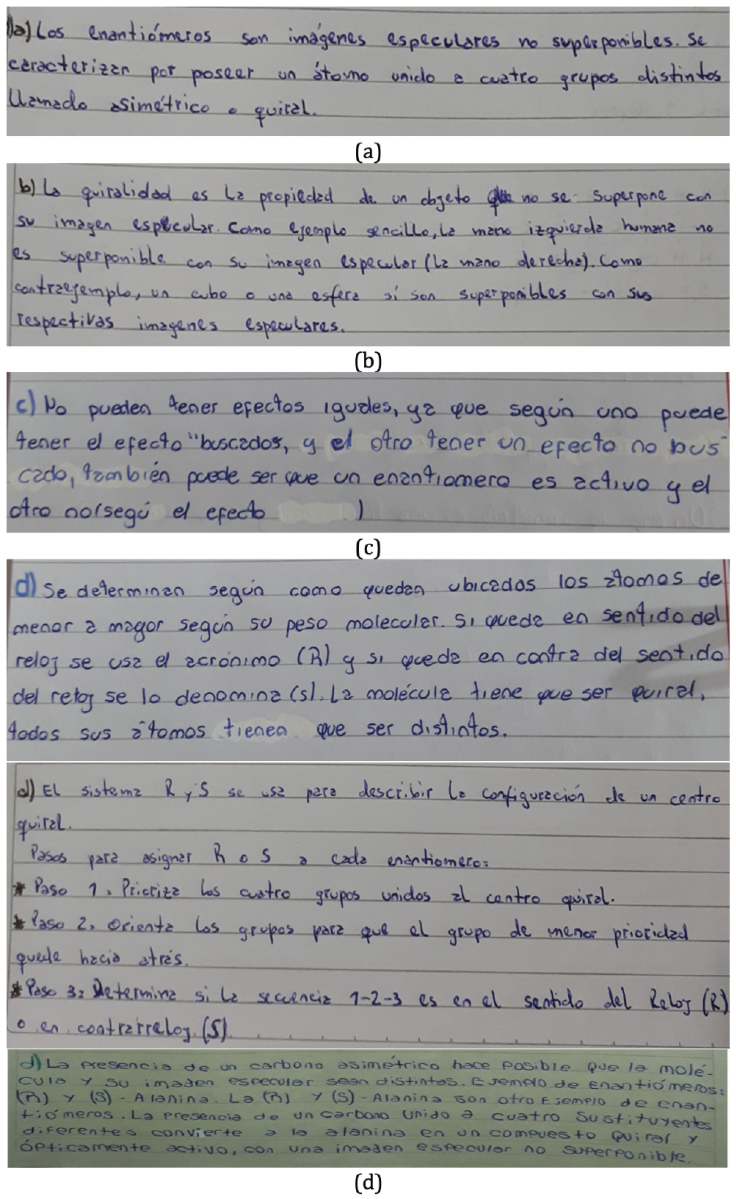 a) Los enantiómeros son imágenes especulares no superponibles. Se
caracterizan por poseer un átomo unido a cuatro grupos distintos
llamado asimétrico o quiral.
(a)
b) La quiralidad es la propiedad de un objeto que no se superpone con
su imagen especular. Como ejemplo sencillo, la mano izquierda humana no
es superponible con su imagen especular (la mano derecha). Como
contraejemplo, un cubo o una esfera sí son superponibles con sus
respectivas imagenes especulares.
(b)
c) No pueden tener efectos iguales, ya que según uno puede
tener el efecto "buscados, y el otro tener un efecto no bus
cado, también puede ser que un enantiomero es activo y el
otro no (segú el efecto )
(c)
d) Se determinan según como quedan ubicados los átomos de
menor a mayor según su peso molecular. Si queda en sentido del
reloj se usa el acrónimo (R) y si queda en contra del sentido
del reloj se lo denomina (s). La molécula tiene que ser quiral,
todos sus átomos tienen que ser distintos.
d) El sistema R y S se usa para describir la configuración de un centro
quiral.
Pasos para asignar R o S a cada enantiomero:
* Paso 1. Prioriza los cuatro grupos unidos al centro quiral.
* Paso 2. Orienta los grupos para que el grupo de menor prioridad
quede hacia atrás.
* Paso 3: Determina si la secuencia 1-2-3 es en el sentido del Reloj (R)
o en contrarreloj (S)
d) La presencia de un carbono asimétrico hace posible que la molé-
cula y su imagen especular sean distintos. Ejemplo de Enantiómeros:
(R) y (S) - Alanina. La (R) y (S) - Alanina son otro Ejemplo de enan-
tiómeros. La presencia de un carbono unido a cuatro sustituyentes
diferentes convierte a la alanina en un compuesto quiral y
ópticamente activo, con una imagen especular no superponible.
(d)